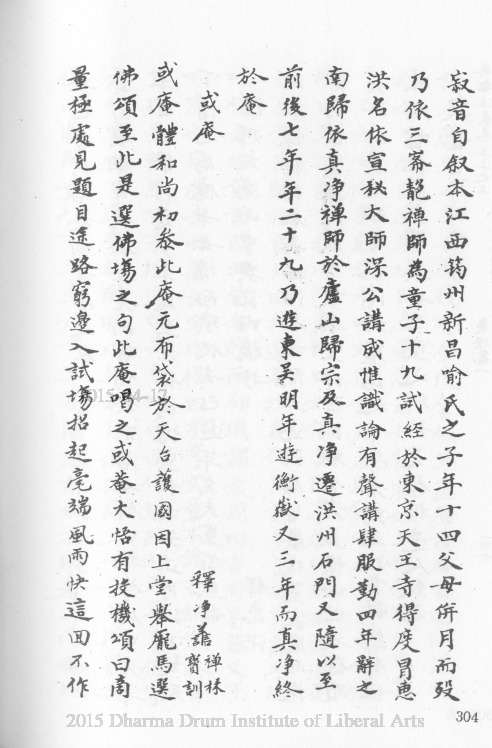 寂音自叙本江西筠州新昌喻氏之子年十四父母併月而歿
乃依三峯龍禪師為童子十九試經於東京天王寺得度冒惠
洪名依宣秘大師深公講成惟識論有聲講肆服勤四年辭之
南歸依真净禪師於廬山歸宗及真净遷洪州石門又隨以至
前後七年年二十九乃遊東吴明年遊衡嶽又三年而真净終
於庵
或庵
釋净善禪林寶訓
或庵體和尚初叅此庵元布袋於天台護國因上堂舉龐馬選
佛頌至此是選佛場之句此庵喝之或菴大悟有投機頌曰商
量極處見題目途路窮邊入試場拈起毫端風雨快這回不作
2015-04-17
304
2015 Dharma Drum Institute of Liberal Arts